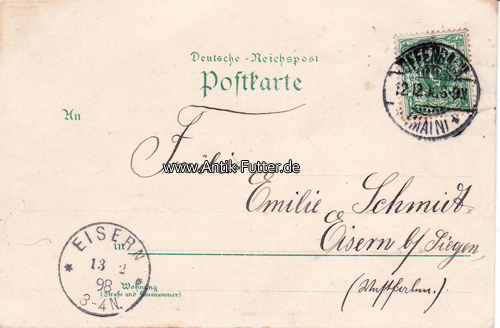 Deutsche - Reichspost
Postkarte
An
Fräulein
www.Antik-Futter.de
Emilie Schmidt
Eisern b/ Siegen
(Westfalen.)
in
Wohnung
(Straße und Hausnummer)
EISERN
13 2
98
3-4N.
OFFENBACH
(MAIN)